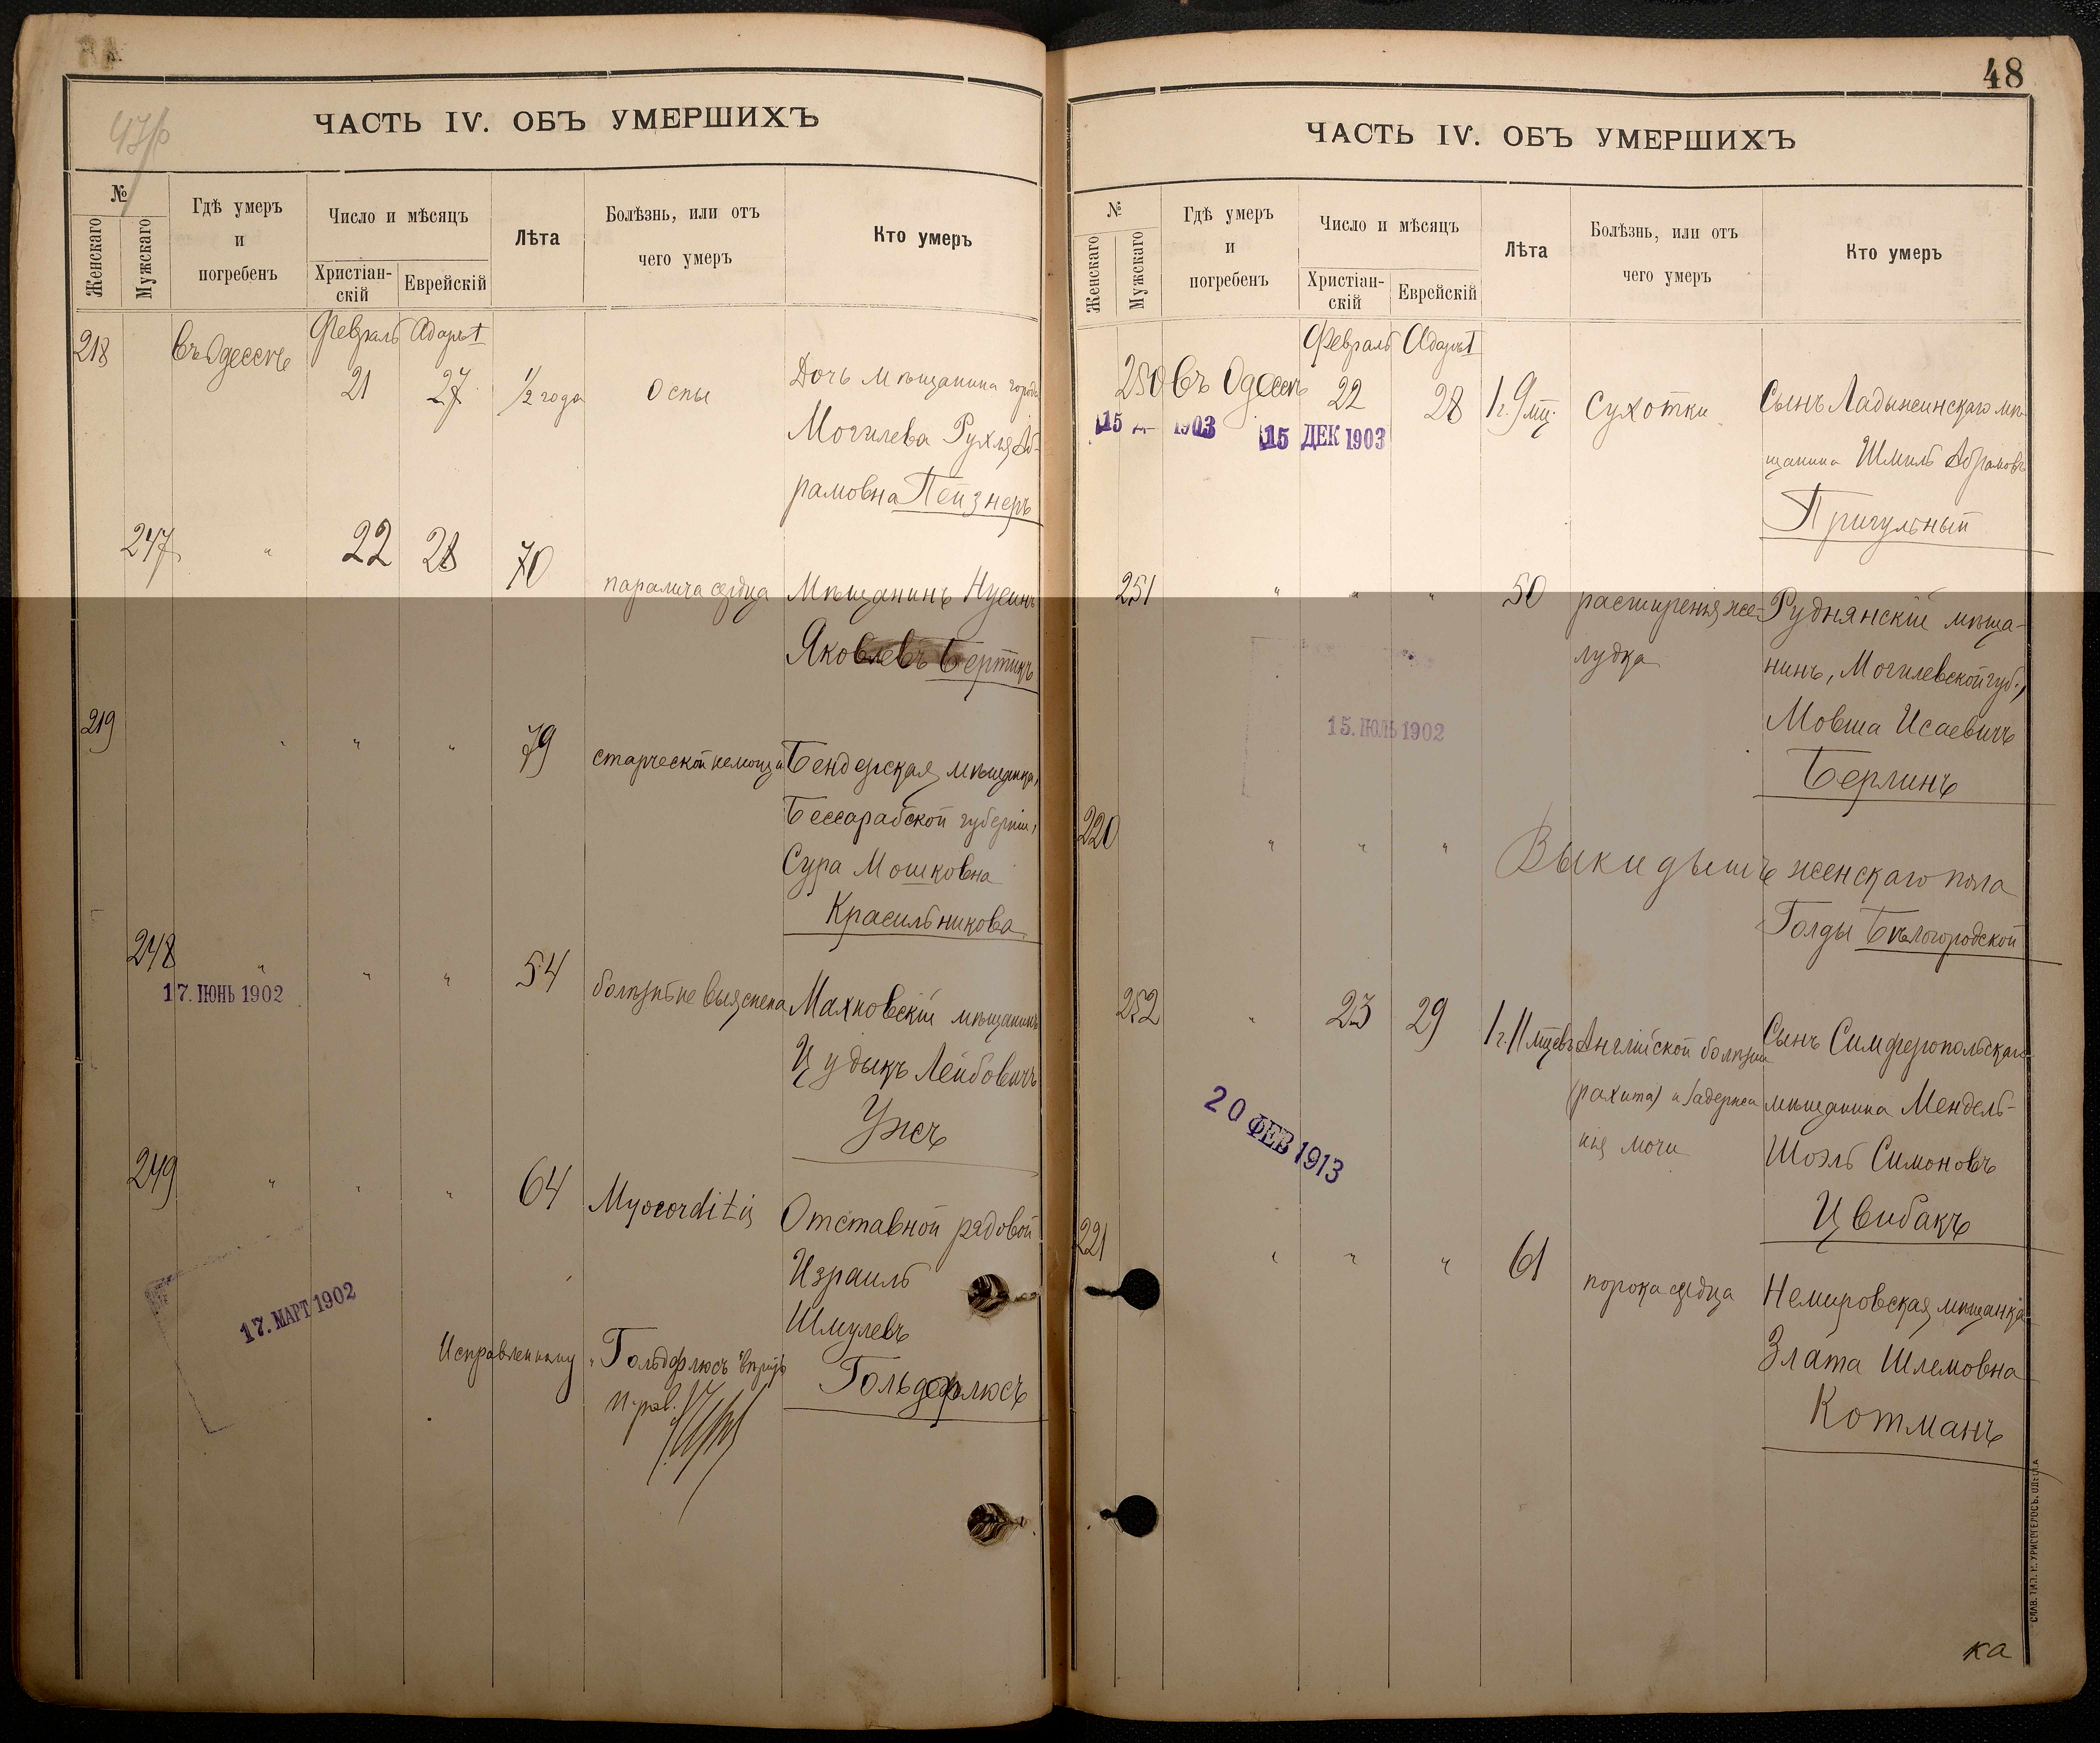 ЧАСТЬ IV. ОБЪ УМЕРШИХЪ
№
Женскаго
Мужскаго
Гдѣ умеръ
и
погребенъ
Число и мѣсяцъ
Христіан-
скій
Еврейскій
Лѣта
Болѣзнь, или отъ
чего умеръ
Кто умеръ
218 въ Одессѣ Февраль Адаръ I
21 27 1/2 года Оспы Дочь мѣщанина города
Могилева Рухля Аб-
рамовна Пейзнеръ
247 " 22 28 70 паралича сердца Мѣщанинъ Нусинъ
Яковлевъ Бертикъ
219 " " " 79 старческой немощи Бендерская мѣщанка,
Бессарабской губерніи,
Сура Мошковна
Красильникова
248 " " " 54 болѣзнь не выяснена Махновскій мѣщанинъ
17. ІЮНЬ 1902
Цудыкъ Лейбовичъ
Ужъ
249 " " " 64 Myocorditis Отставной рядовой
Израиль
17. МАРТ 1902
Шмулевъ
Исправленному „Гольдфлюсъ" вѣрить
Гольдфлюсъ
48
ЧАСТЬ IV. ОБЪ УМЕРШИХЪ
№
Женскаго
Мужскаго
Гдѣ умеръ
и
погребенъ
Число и мѣсяцъ
Христіан-
скій
Еврейскій
Лѣта
Болѣзнь, или отъ
чего умеръ
Кто умеръ
Февраль Адаръ I
250 въ Одессѣ 22 28 1 г. 9 мц. Сухотки Сынъ Ладыжинскаго мѣ-
15 1903 15 ДЕК 1903
щанина Шмиль Абрамовъ
Пригульный
251 " " " 50 расширенія же- Руднянскій мѣща-
лудка нинъ, Могилевской губ.,
15. ІЮЛЬ 1902
Мовша Исаевичъ
Берлинъ
220 " " " Выкидышъ женскаго пола
Голды Бѣлогородской
252 " 23 29 1 г. 11 мцевъ Англійской болѣзни Сынъ Симферопольскаго
(рахита) и задержа мѣщанина Мендель-
нія мочи Шоэль Симоновъ
20 ФЕВ 1913
Цвибакъ
221 " " " 61 порока сердца Немировская мѣщанка
Злата Шлемовна
Котманъ
ка